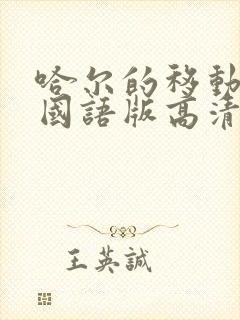 哈尔的移動
國語版高清
王英誠